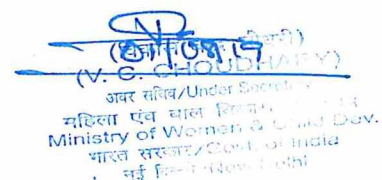 01/08/19
(V. C. CHOUDHARY)
अवर सचिव/Under Secret
महिला एंव बाल
Ministry of Women & Child Dev.
भारत सरकार/Govt. of India
नई New Delhi